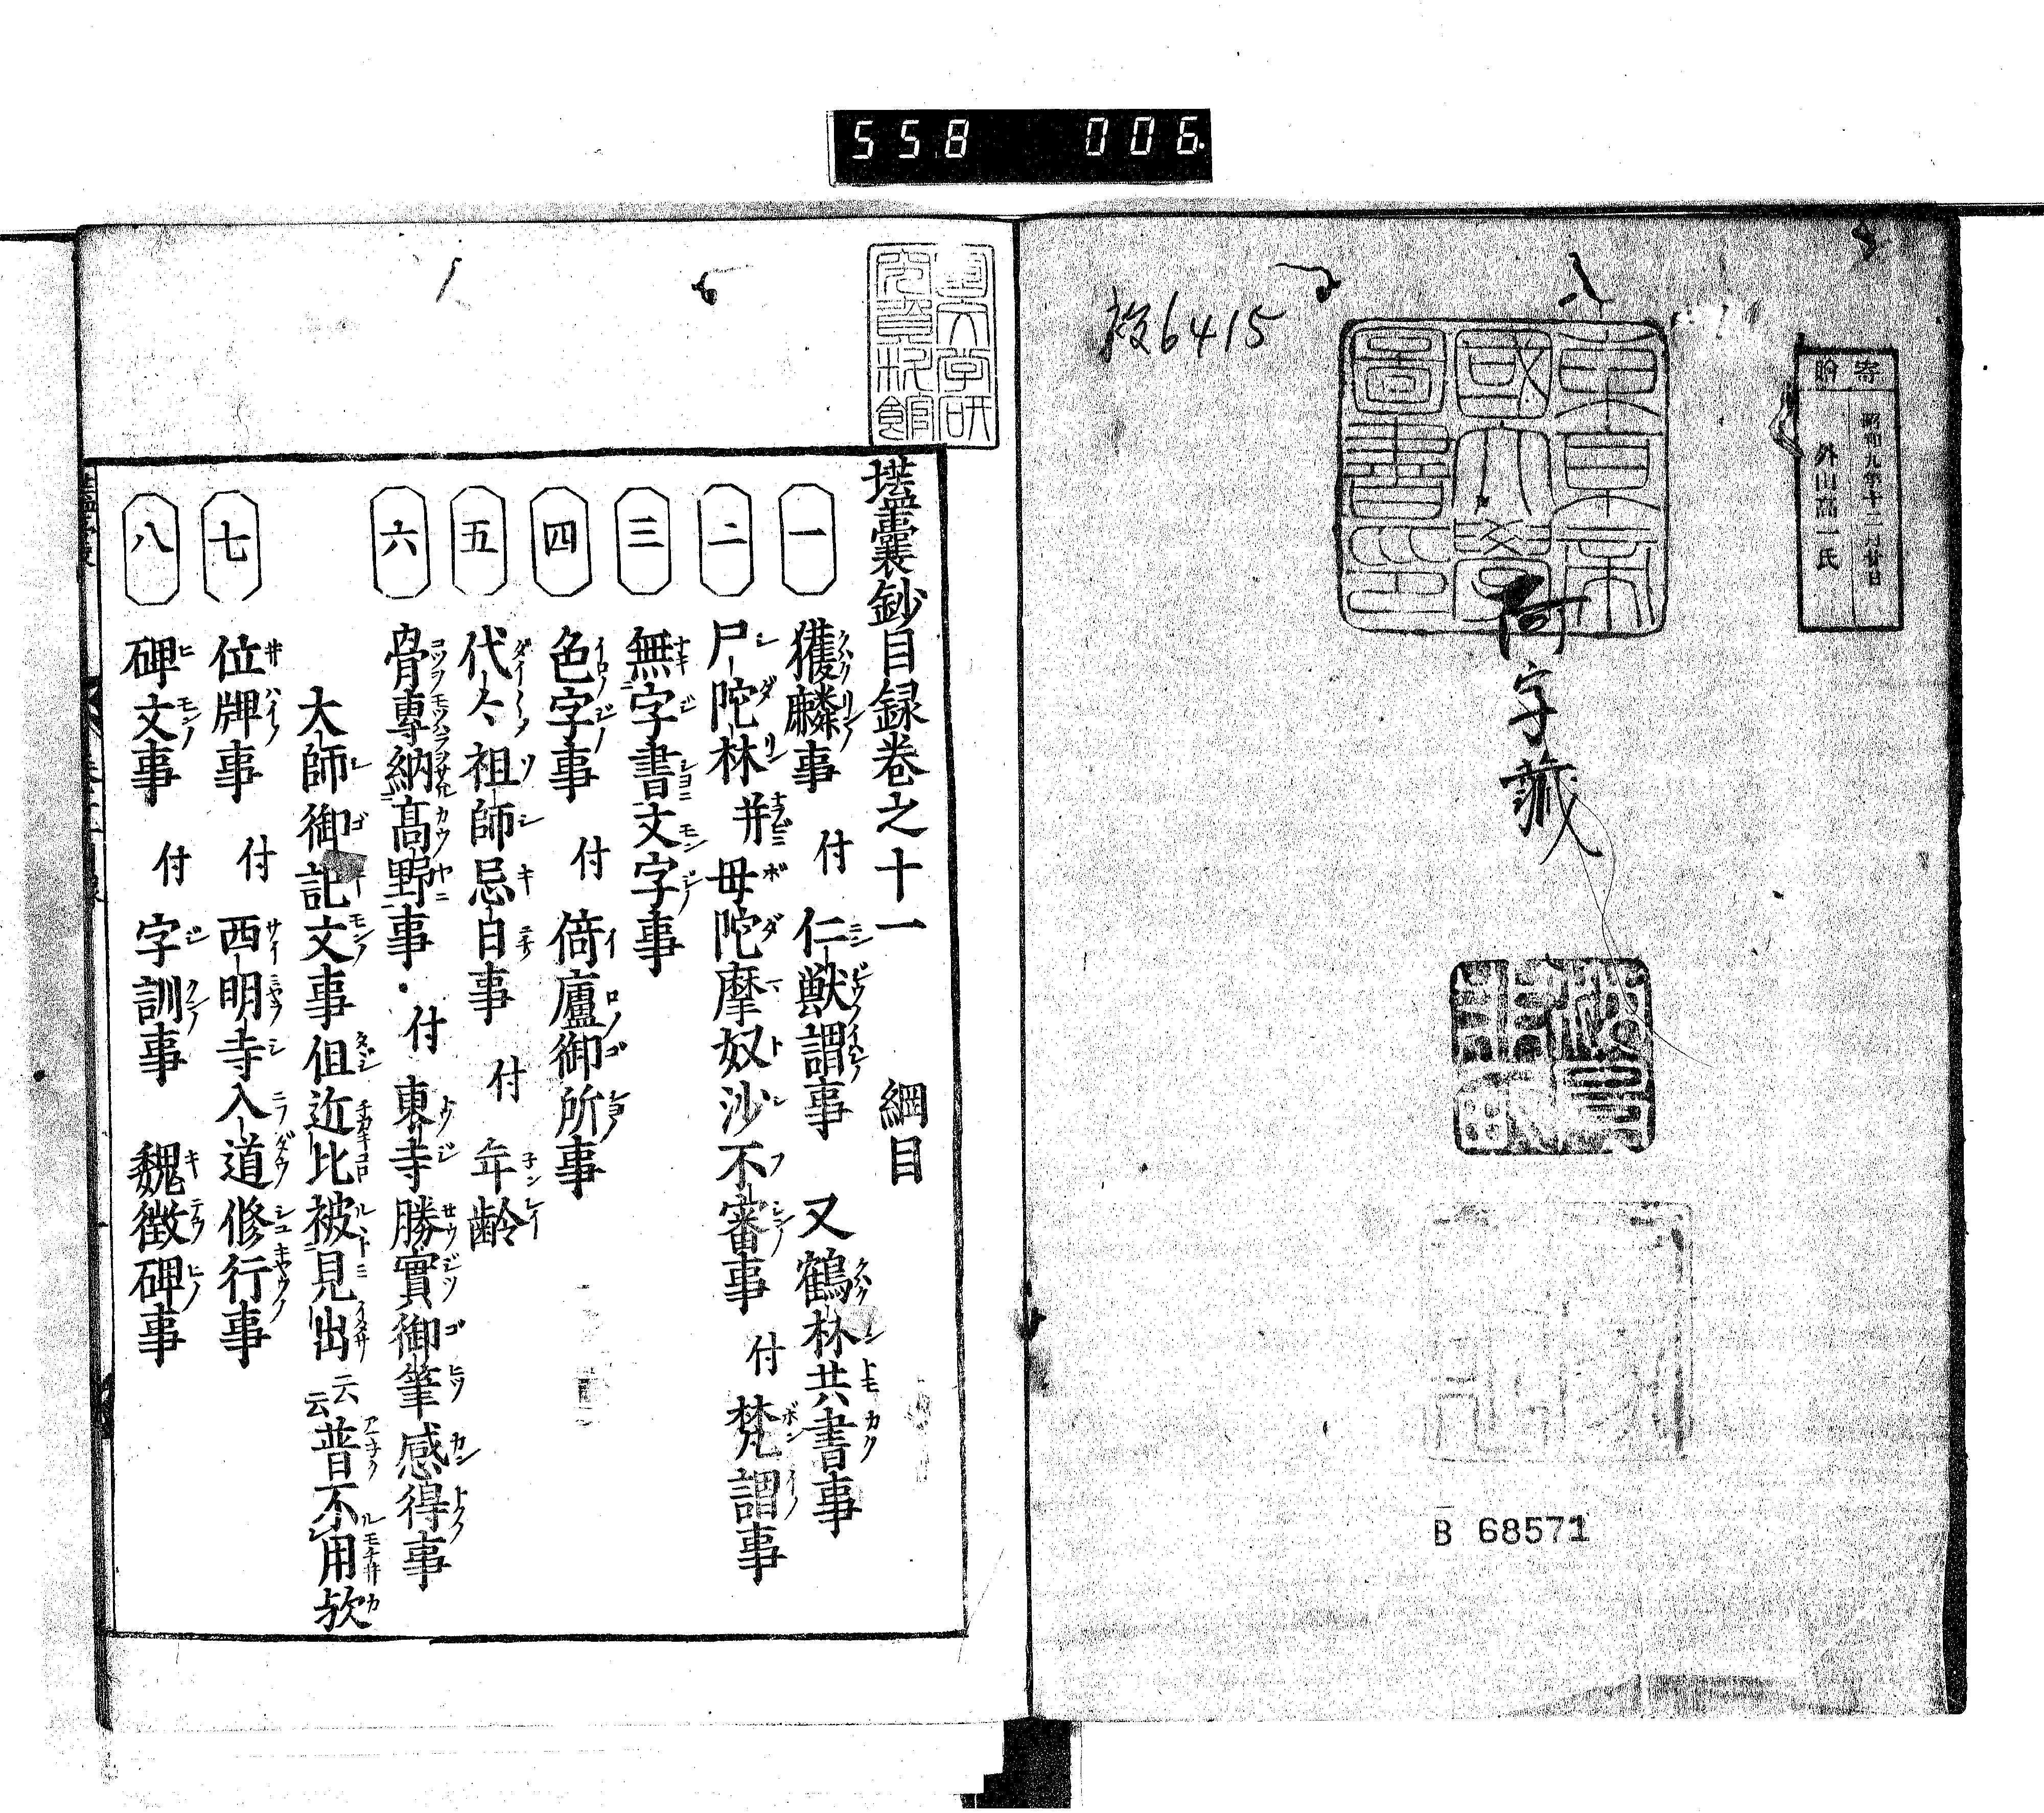 558 006
寄贈
昭和九年十二月廿日
外山高一氏
設6415
東京帝
國大學
圖書印
阿字藏
B 68571
國文学研
究資料館
壒囊鈔目録卷之十一 綱目
一 獲麟事 付 仁獣謂事 又鶴林共書事
二 尸陀林 并 毋陀摩奴沙不審事 付 梵謂事
三 無字書文字事
四 色字事 付 倚廬御所事
五 代々祖師忌日事 付 年齢
六 骨專納高野事 付 東寺勝實御筆感得事
大師御記文事但近比被見出云云普不用欤
七 位牌事 付 西明寺入道修行事
八 碑文事 付 字訓事 魏徴碑事